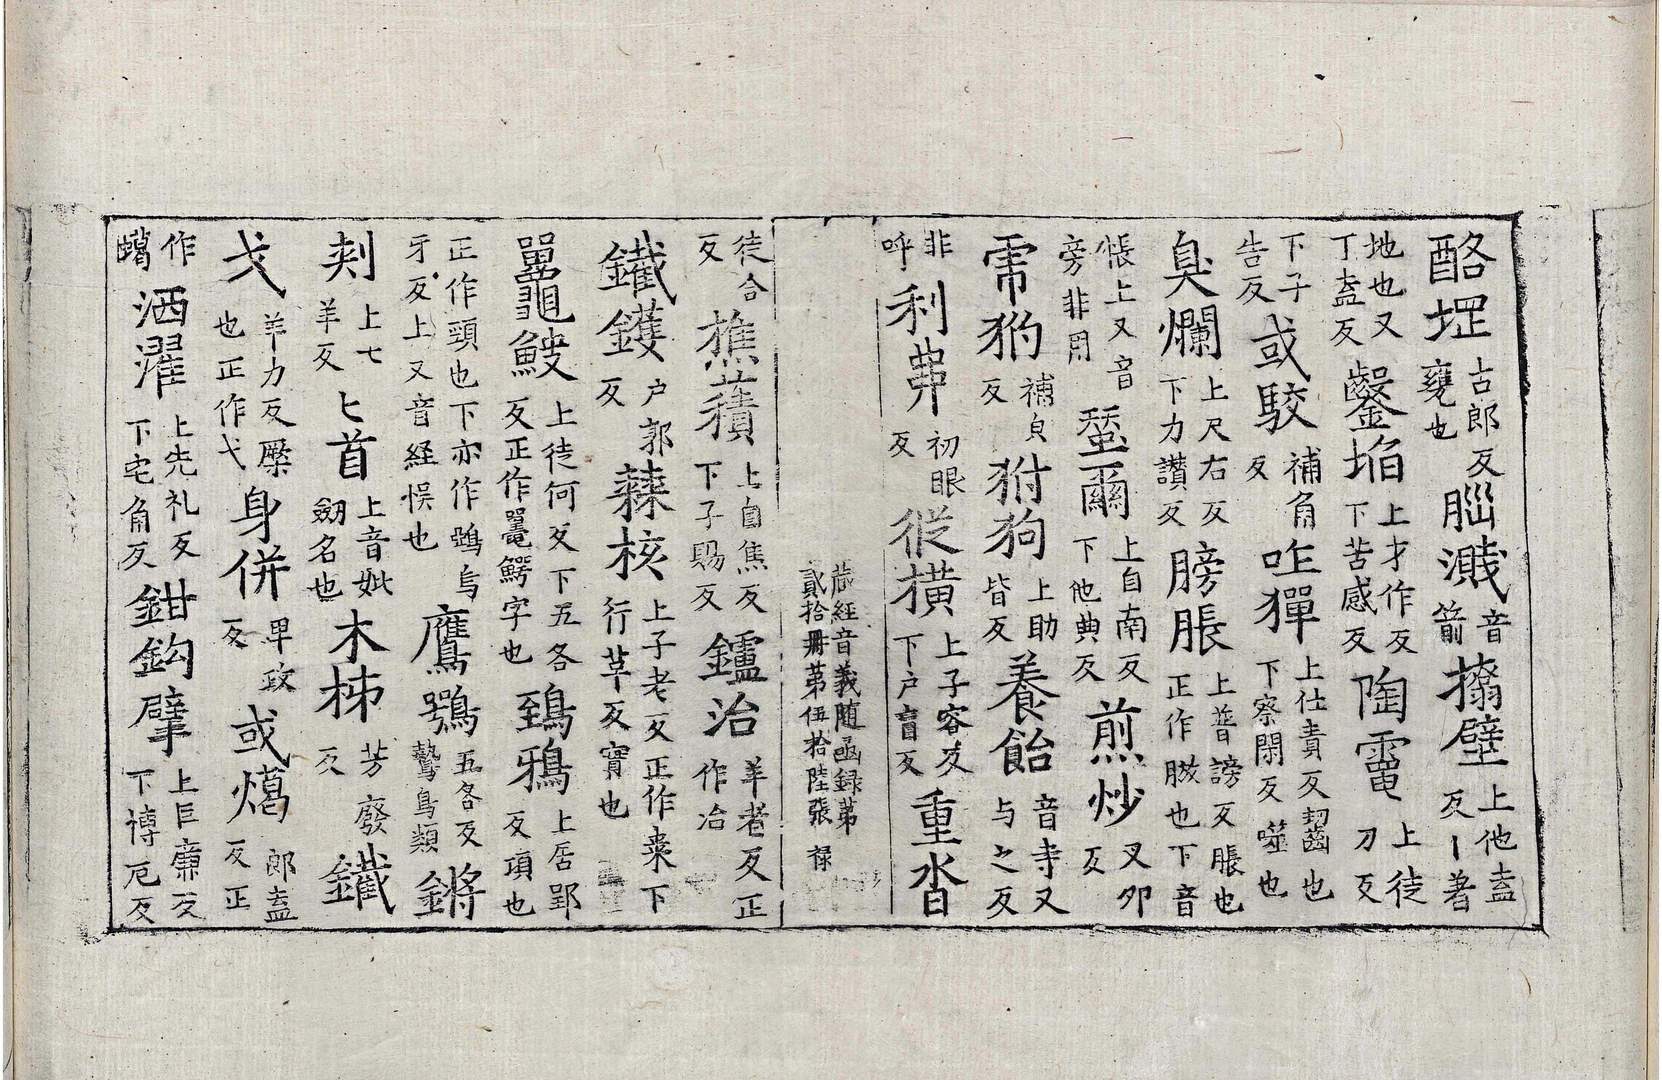 酪堽古郎反瓮也𦛁濺音箭搨壁上他盍反丨著
地也又丁盍反鑿埳上才作反下苦感反陶竃上徒刀反
下子告反或駮補角反咋獋上仕責反齧齒也下察閑反噬也
臭爛上尺右反下力讃反膀脹上普謗反脹也正作䐜也下音
悵上又音旁非用蝅爾上自南反下他典反煎炒叉夘反
虎豹補皃反犲狗上助皆反養飴音寺又与之反
非呼利弗初眼反從横上子容反下户盲反重沓
藏經音義随函録第貳拾册第伍拾陸張 禄
徒合反樵積上自焦反下子賜反鑪冶羊者反正作冶
鐵鑊户郭反棘核上子老反正作枣下行草反實也
鼉鮍上徒何反下五各反正作鼉鰐字也鵄鴉上居郢反項也
正作頸也下亦作鵶烏牙反上又音経悮也鷹鶚五各反鷙鳥類鏘
刾上七羊反匕首上音妣劒名也木柹芳廢反鐵
弋羊力反橜也正作弋身併畢政反或㸎郎盍反正
作䗶洒濯上先礼反下宅角反鉗鉤擘上巨廉反下博厄反